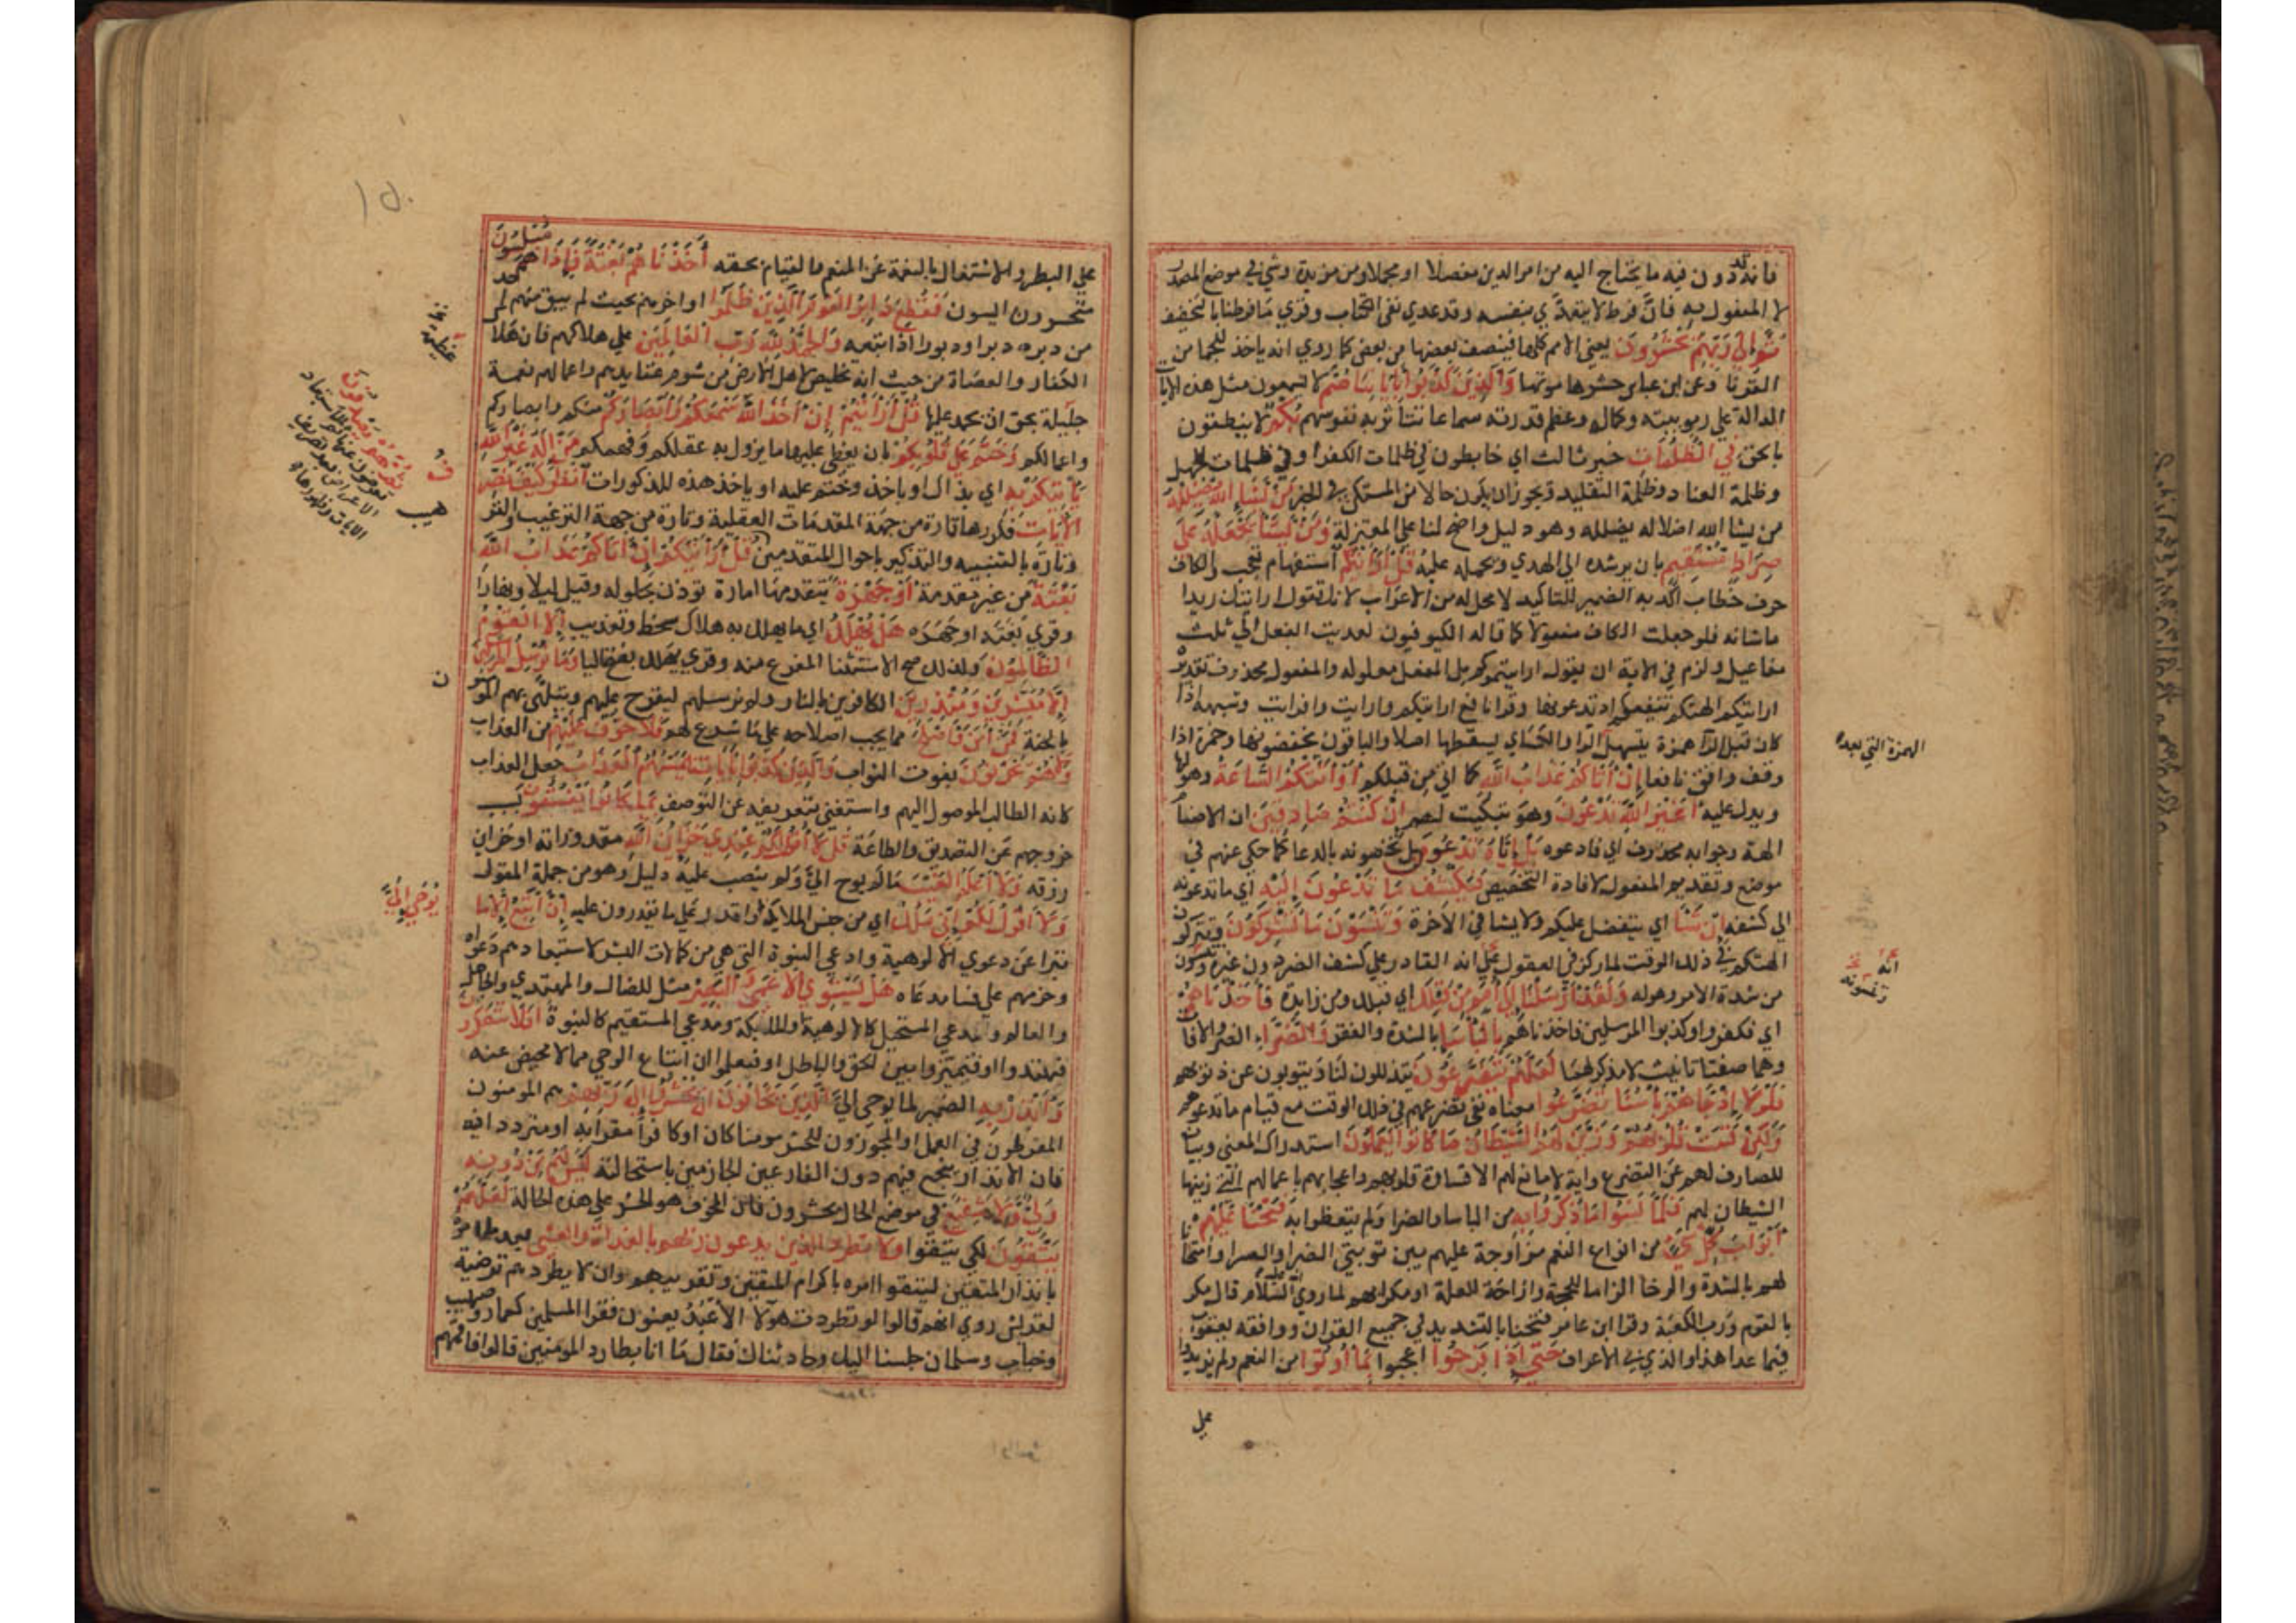 فانه قد دون فيه ما يحتاج اليه من امر الدين مفصلا او مجملا ومن مزيدة وشيء في موضع المصدر
لا المفعول به فان فرط لا يتعدي بنفسه وقد عدي بفي الى الكتاب وقري ما فرطنا بالتخفيف
ثم الي ربهم يحشرون يعني الامم كلها فينصف بعضها من بعض كما روي انه ياخذ للجما من
القرنا وعن ابن عباس حشرها موتها والذين كذبوا باياتنا صم لا يسمعون مثل هذه الايات
الدالة علي ربوبيته وكمال وعظم قدرته سماعا تتاثر به نفوسهم وبكم لا ينطقون
بالحق في الظلمات خبر ثالث اي خابطون في ظلمات الكفر او في ظلمات الجهل
وظلمة العناد وظلمة التقليد ويجوز ان يكون حالا من المستكن في الخبر من يشا الله يضلله
من يشا الله اضلاله يضلله وهو دليل واضح لنا علي المعتزلة ومن يشا يجعله علي
صراط مستقيم بان يرشده الي الهدي ويحمله عليه قل ارايتكم استفهام تعجب والكاف
حرف خطاب اكد به الضمير للتاكيد لا محل له من الاعراب لانك تقول ارايتك زيدا
ما شانه فلو جعلت الكاف مفعولا كما قاله الكوفيون لعديت الفعل الي ثلث
مفاعيل ولزم في الاية ان يقول ارايتموكم بل الفعل معلق له والمفعول محذوف تقديره
ارايتكم الهتكم تنفعكم اذ تدعونها وقرا نافع ارايتكم وارايت وافرايت وشبهه اذا
كان قبل الرا همزة بتسهيل الهمزة التي بعدها والكساي يسقطها اصلا والباقون يحققونها وحمزة اذا
وقف وافق نافعا ان اتاكم عذاب الله كما اتي من قبلكم او اتتكم الساعة وهولها
ويدل عليه اغير الله تدعون وهو تبكيت لهم ان كنتم صادقين ان الاصنام
الهة وجوابه محذوف اي فادعوه بل اياه تدعون بل تخصونه بالدعا كما حكي عنهم في
موضع وتقديم المفعول لافادة التخصيص فيكشف ما تدعون اليه اي ما تدعونه
الي كشفه ان شا اي يتفضل عليكم ولا يشا في الاخرة وتنسون ما تشركون وتتركون
الهتكم في ذلك الوقت لما ركز في العقول علي انه القادر علي كشف الضر دون غيره وتنسون
من شدة الامر وهوله ولقد ارسلنا الي امم من قبلك اي قبلك ومن زايدة فاخذناهم
اي فكفروا وكذبوا المرسلين فاخذناهم بالباسا بالشدة والفقر والضرا الضر والافات
وهما صيغتا تانيث لا مذكر لهما لعلهم يتضرعون يتذللون لنا ويتوبون عن ذنوبهم
فلولا اذ جاهم باسنا تضرعوا معناه نفي تضرعهم في ذلك الوقت مع قيام ما تدعوهم
ولكن قست قلوبهم وزين لهم الشيطان ما كانوا يعملون استدراك علي المعني وبيان
للصارف لهم عن التضرع وانه لا مانع لهم الا قساوة قلوبهم واعجابهم باعمالهم التي زينها
الشيطان لهم فلما نسوا ما ذكروا به من الباسا والضرا ولم يتعظوا به فتحنا عليهم
ابواب كل شيء من انواع النعم مزاوجة عليهم بين نوبتي الضرا والسرا وامتحانا
لهم بالشدة والرخا الزاما للحجة وازاحة للعلة او مكرا بهم لما روي انه عليه السلام قال مكر
بالقوم ورب الكعبة وقرا ابن عامر فتحنا بالتشديد في جميع القران ووافقه يعقوب
فيما عدا هذا والذي في الاعراف حتي اذا فرحوا اعجبوا بما اوتوا من النعم ولم يزيدوا
علي
الهمزة التي بعدها
انه
وتنسونه
١٥٠
علي البطر والاشتغال بالنعمة عن المنعم والقيام بحقه اخذناهم بغتة فاذا هم مبلسون
متحسرون ايسون فقطع دابر القوم الذين ظلموا اي اخرهم بحيث لم يبق منهم احد
من دبره دبرا ودبورا اذا تبعه والحمد لله رب العالمين علي هلاكهم فان هلاك
الكفار والعصاة من حيث انه تخليص لاهل الارض من شوم عقايدهم واعمالهم نعمة
جليلة يحق ان يحمد عليها قل ارايتم ان اخذ الله سمعكم وابصاركم اصمكم واعماكم
وختم علي قلوبكم بان يغطي عليها ما يزول به عقلكم وفهمكم من اله غير الله
ياتيكم به اي بذاك او بما اخذ وختم عليه او باحد هذه المذكورات انظر كيف نصرف
الايات نكررها تارة من جهة المقدمات العقلية وتارة من جهة الترغيب والترهيب
وتارة بالتنبيه والتذكير باحوال المتقدمين قل ارايتكم ان اتاكم عذاب الله
بغتة من غير مقدمة او جهرة يتقدمها امارة توذن بحلوله وقيل ليلا ونهارا
وقري بغتة او جهرة هل يهلك اي ما يهلك به هلاك سخط وتعذيب الا القوم
الظالمون ولذلك صح الاستثنا المفرغ منه وقري يهلك بفتح اليا وما نرسل المرسلين
الا مبشرين ومنذرين الكافرين بالنار ولم نرسلهم ليقترح عليهم ويتلهي بهم المومنين
بالجنة فمن امن واصلح ما يجب اصلاحه علي ما شرع لهم فلا خوف عليهم من العذاب
ولا هم يحزنون بفوت الثواب والذين كذبوا باياتنا يمسهم العذاب جعل العذاب
كانه الطالب للوصول اليهم واستغني بتعريفه عن التوصيف بما كانوا يفسقون بسبب
خروجهم عن التصديق والطاعة قل لا اقول لكم عندي خزاين الله مقدوراته او خزاين
رزقه ولا اعلم الغيب ما لم يوح الي ولم ينصب عليه دليل وهو من جملة المقول
ولا اقول لكم اني ملك اي من جنس الملايكة او اقدر علي ما يقدرون عليه ان اتبع الا ما
يوحي الي
تبرا عن دعوي الالوهية وادعي النبوة التي هي من كمالات البشر لاستبعادهم دعواه
وجزمهم علي فساد مدعاه هل يستوي الاعمي والبصير مثل للضال والمهتدي والجاهل
والعالم ومدعي المستحيل كالالوهية والملكية ومدعي المستقيم كالنبوة افلا تتفكرون
فتهتدوا او فتميزوا بين الحق والباطل او فتعلموا ان اتباع الوحي مما لا محيص عنه
وانذر به الضمير لما يوحي الي الذين يخافون ان يحشروا الي ربهم هم المومنون
المفرطون في العمل او المجوزون للحشر مومنا كان او كافرا مقرا به او مترددا فيه
فان الانذار ينجع فيهم دون الفارغين الجازمين باستحالته ليس لهم من دونه
ولي ولا شفيع في موضع الحال من يحشرون فان المخوف هو الحشر علي هذه الحالة لعلهم
يتقون لكي يتقوا ولا تطرد الذين يدعون ربهم بالغداة والعشي بعد ما امره
بانذار المتقين ليتقوا امره باكرام المتقين وتقريبهم وان لا يطردهم ترضية
لقريش روي انهم قالوا لو طردت هولا الاعبد يعنون فقرا المسلمين كعمار وصهيب
وخباب وسلمان جلسنا اليك وحادثناك فقال ما انا بطارد المومنين قالوا فاقمهم